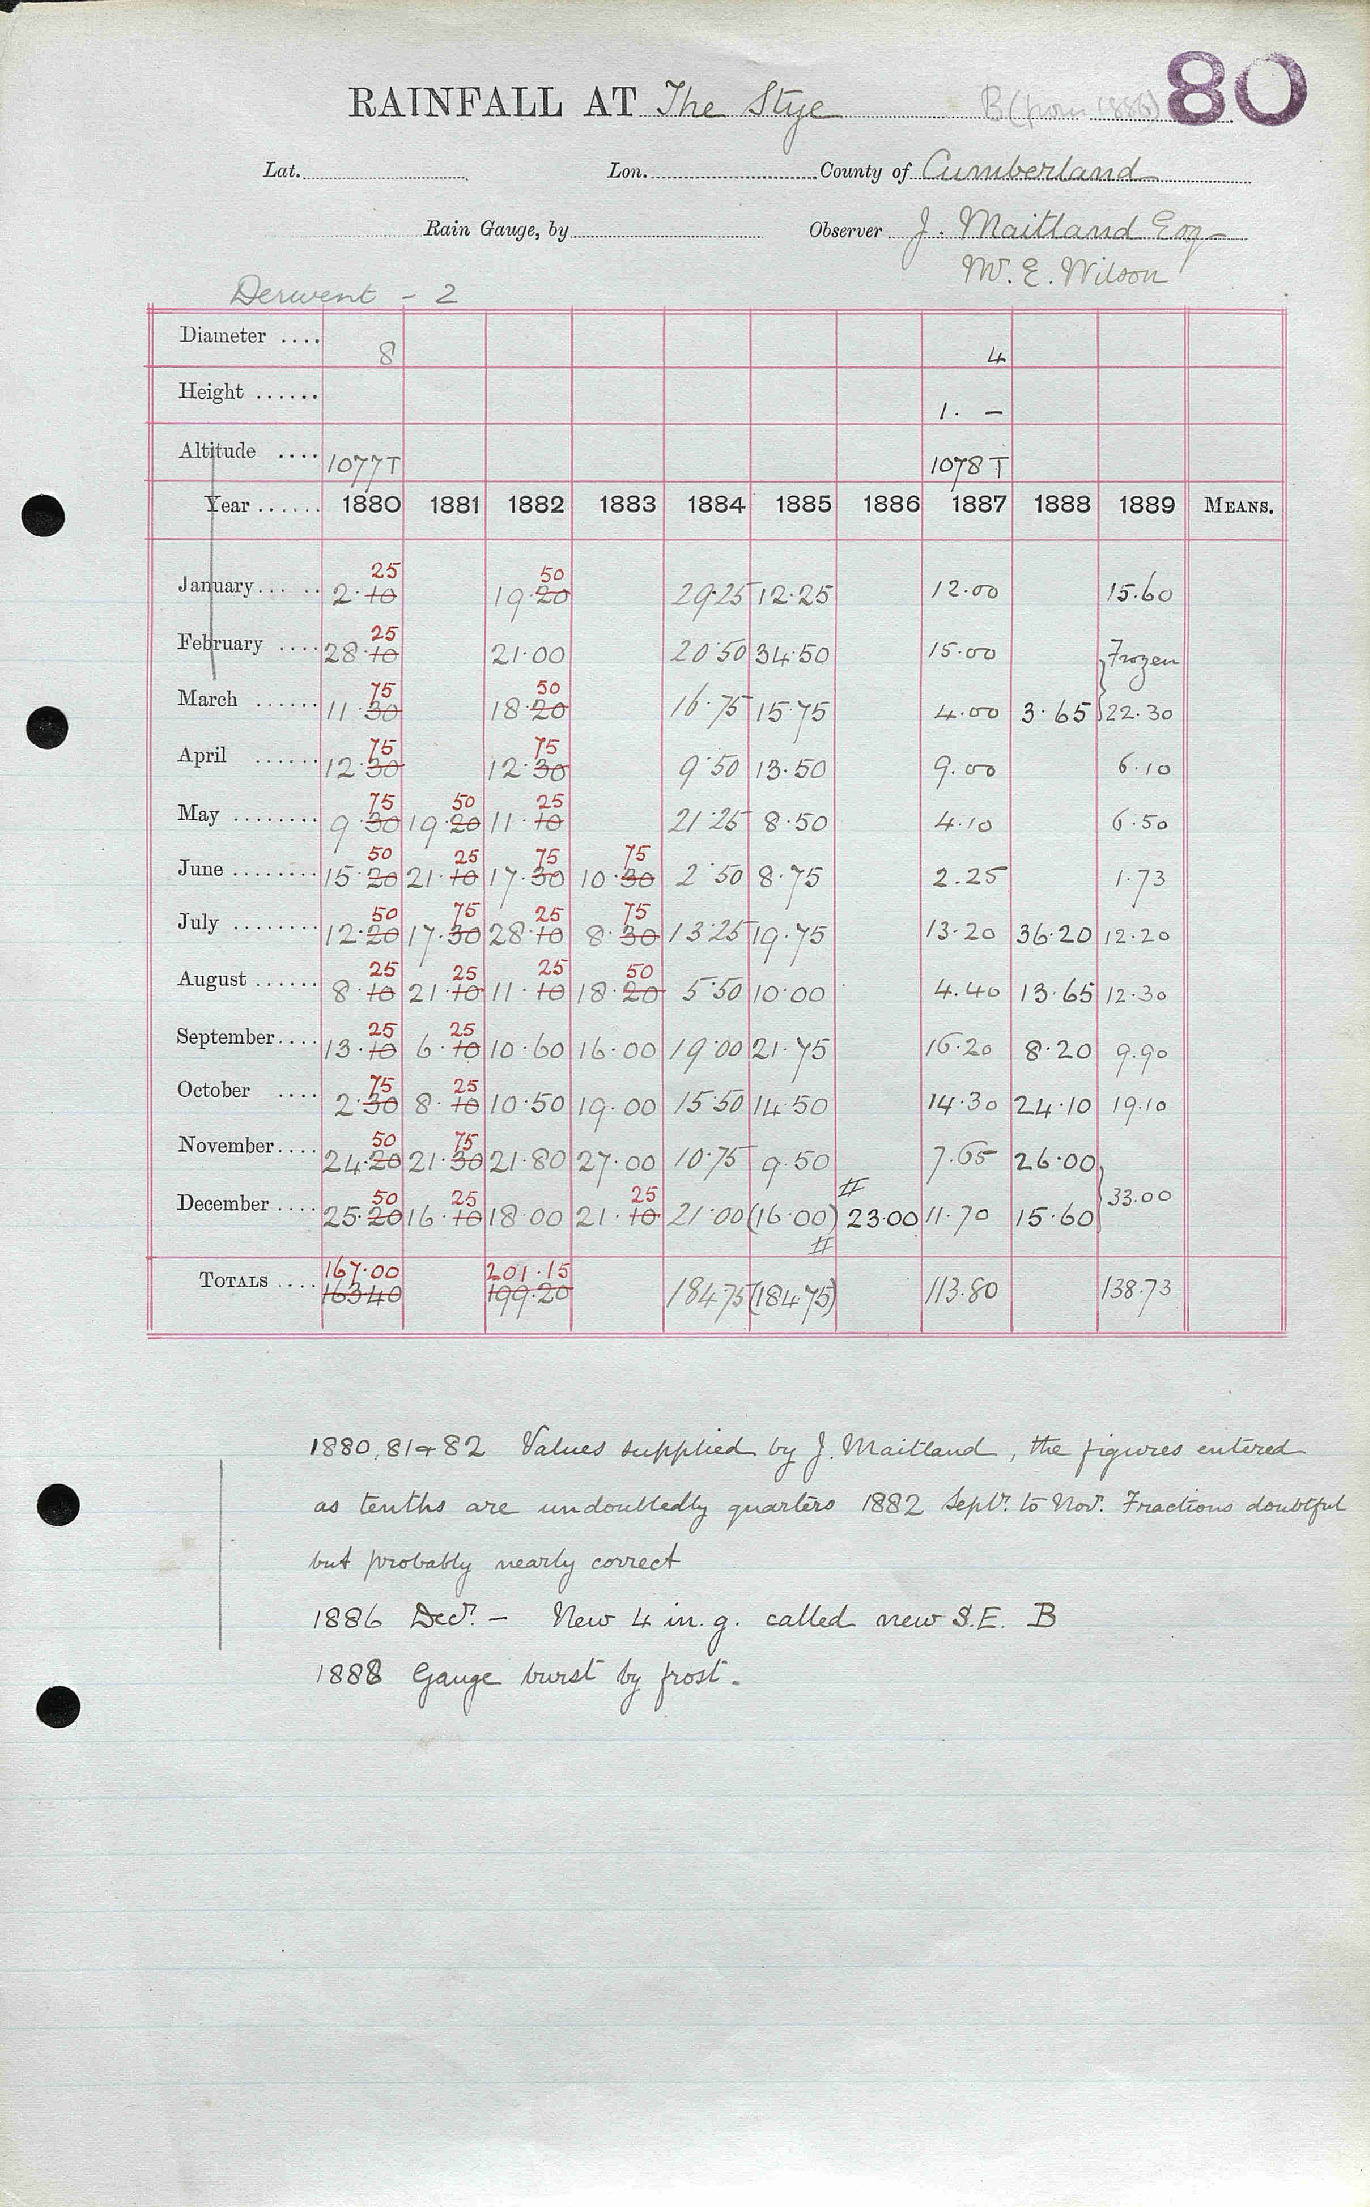 80
RAINFALL AT The Stye B (from 1886)
Lat. Lon. County of Cumberland
Rain Gauge, by Observer J. Maitland Esq
W. E. Wilson
Derwent - 2
Diameter .... 8 4
Height ...... 1. –
Altitude .... 1077T 1078T
Year ...... 1880 1881 1882 1883 1884 1885 1886 1887 1888 1889 MEANS.
25 50
January ... 2.10 19.20 29.25 12.25 12.00 15.60
25
February .... 28.10 21.00 20.50 34.50 15.00 Frozen
75 50
March ...... 11.30 18.20 16.75 15.75 4.00 3.65 22.30
75 75
April ...... 12.30 12.30 9.50 13.50 9.00 6.10
75 50 25
May ........ 9.30 19.20 11.10 21.25 8.50 4.10 6.50
50 25 75 75
June ........ 15.20 21.10 17.30 10.30 2.50 8.75 2.25 1.73
50 75 25 75
July ........ 12.20 17.30 28.10 8.30 13.25 19.75 13.20 36.20 12.20
25 25 25 50
August ...... 8.10 21.10 11.10 18.20 5.50 10.00 4.40 13.65 12.30
25 25
September.... 13.10 6.10 10.60 16.00 19.00 21.75 16.20 8.20 9.90
75 25
October .... 2.30 8.10 10.50 19.00 15.50 14.50 14.30 24.10 19.10
50 75
November.... 24.20 21.30 21.80 27.00 10.75 9.50 7.65 26.00
50 25 25
December .... 25.20 16.10 18.00 21.10 21.00 (16.00) 23.00 11.70 15.60 33.00
167.00 201.15
TOTALS .... 163.40 199.20 184.75 (184.75) 113.80 138.73
1880, 81 & 82 Values supplied by J. Maitland, the figures entered
as tenths are undoubtedly quarters 1882 Septr. to Novr. Fractions doubtful
but probably nearly correct
1886 Decr. – New 4 in. g. called new S.E. B
1888 Gauge burst by frost.